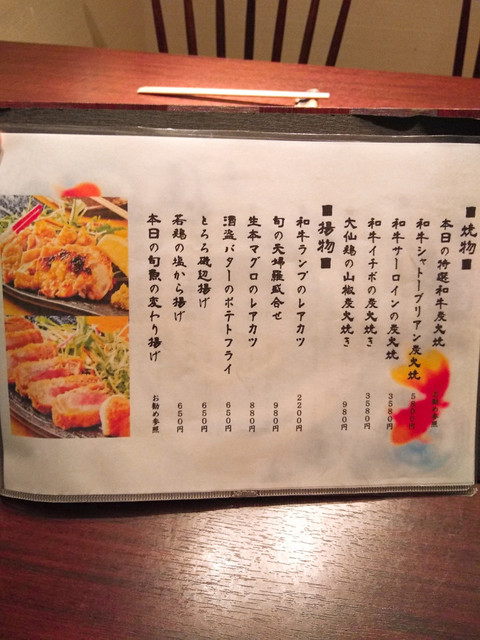 ■焼物■
本日の特選和牛炭火焼 お勧め参照
和牛シャトーブリアン炭火焼 5800円
和牛サーロインの炭火焼 3580円
和牛イチボの炭火焼き 3580円
大仙鶏の山椒炭火焼き 980円
■揚物■
和牛ランプのレアカツ 2200円
旬の天婦羅盛合せ 980円
生本マグロのレアカツ 880円
酒盗バターのポテトフライ 650円
とろろ磯辺揚げ 650円
若鶏の塩から揚げ 650円
本日の旬魚の変わり揚げ お勧め参照